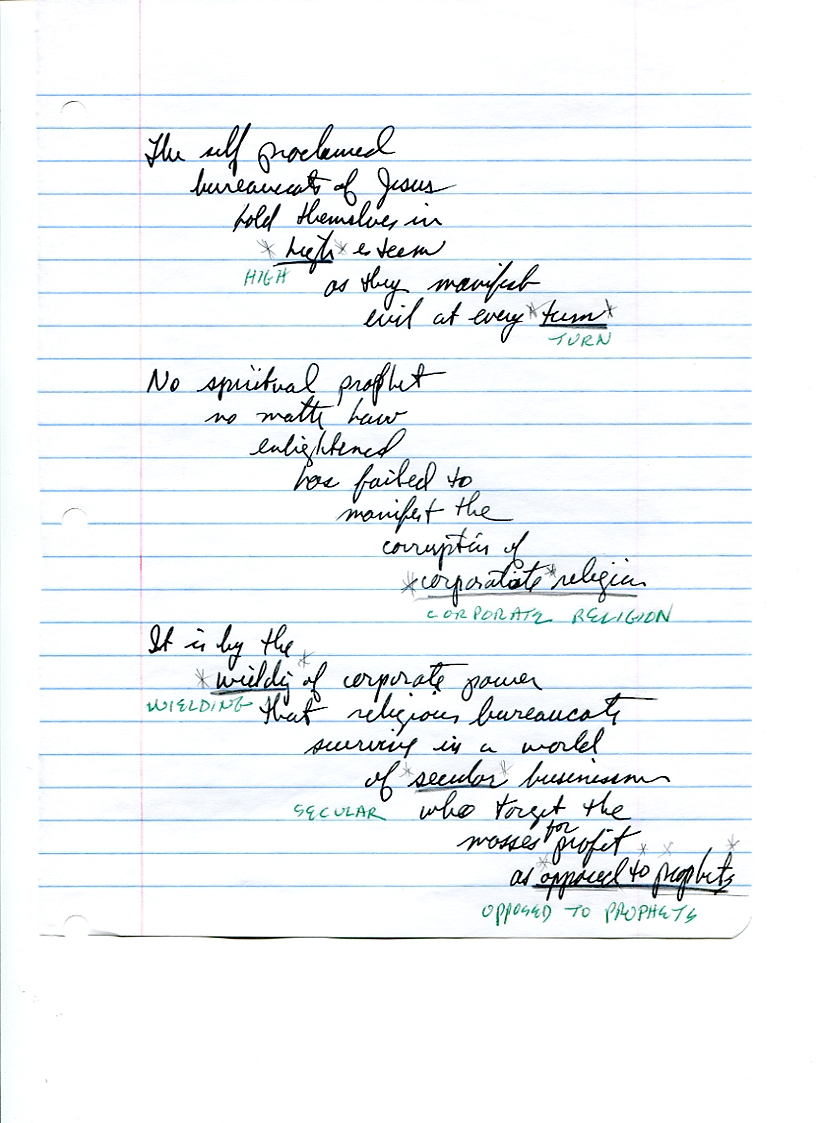 The self proclaimed
bureaucats of Jesus
hold themselves in
* high * esteem
HIGH
as they manifest
evil at every * turn *
TURN
No spiritual prophet
no matter how
enlightened
has failed to
manifest the
corruption of
* corporate * religion
CORPORATE RELIGION
It is by the
* wielding * of corporate power
WIELDING
that religious bureaucats
survive in a world
of * secular * businessmen
SECULAR
who target the
masses for profit
as * opposed * to * prophets *
OPPOSED TO PROPHETS